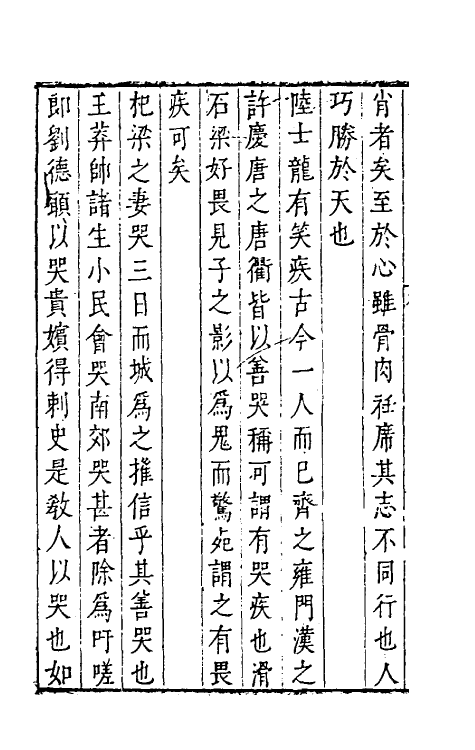 肖者矣至於心雖骨肉袵席其志不同行也人
巧勝於天也
陸士龍有笑疾古今一人而已齊之雍門漢之
許慶唐之唐衢皆以善哭稱可謂有哭疾也滑
石梁好畏見子之影以爲鬼而驚死謂之有畏
疾可矣
杞梁之妻哭三日而城爲之摧信乎其善哭也
王莽帥諸生小民會哭南郊哭甚者除爲吁嗟
郎劉德願以哭貴嬪得刺史是敎人以哭也如